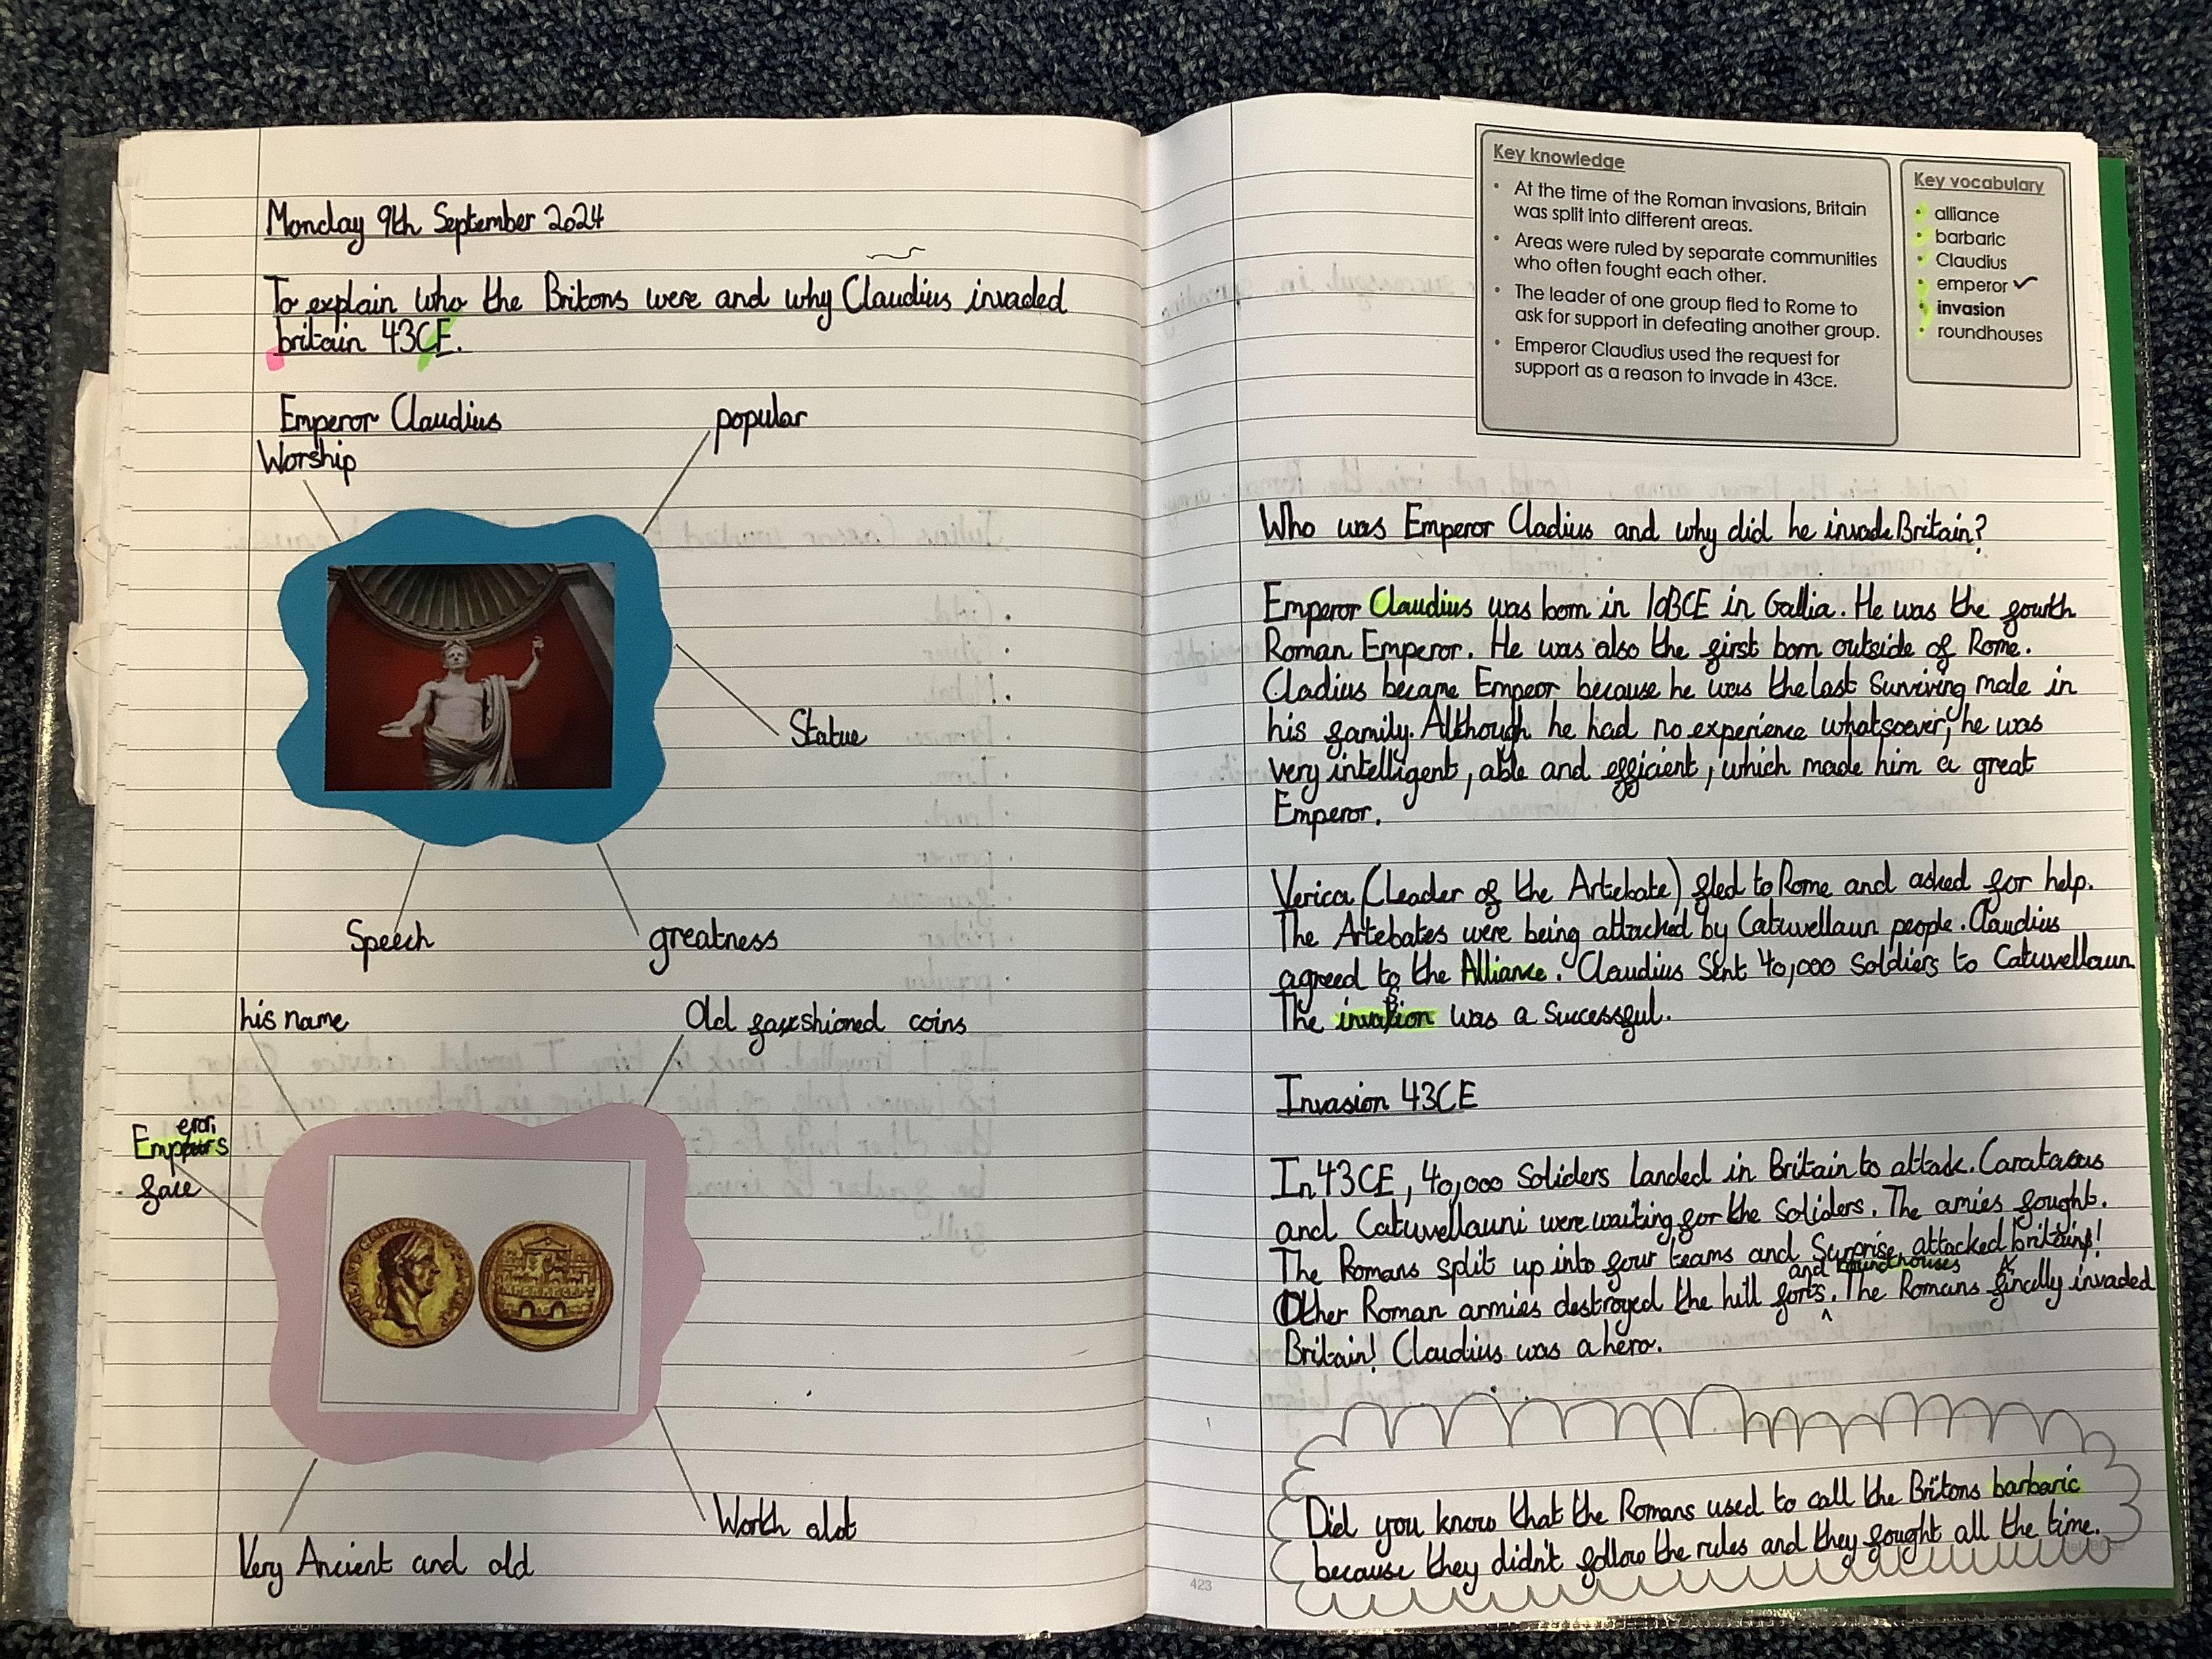 Monday 9th September 2024
To explain who the Britons were and why Claudius invaded
britain 43CE.
Emperor Claudius
Worship
popular
Statue
Speech
greatness
his name
Old fashioned coins
Emperors
face
Worth alot
Very Ancient and old
Key knowledge
• At the time of the Roman invasions, Britain
was split into different areas.
• Areas were ruled by separate communities
who often fought each other.
• The leader of one group fled to Rome to
ask for support in defeating another group.
• Emperor Claudius used the request for
support as a reason to invade in 43CE.
Key vocabulary
• alliance
• barbaric
• Claudius
• emperor ✓
• invasion
• roundhouses
Who was Emperor Cladius and why did he invade Britain?
Emperor Claudius was born in 10BCE in Gallia. He was the fourth
Roman Emperor. He was also the first born outside of Rome.
Cladius became Empeor because he was the last Surviving male in
his family. Although he had no experience whatsoever, he was
very intelligent, able and efficient, which made him a great
Emperor.
Verica (Leader of the Artebate) fled to Rome and asked for help.
The Artebates were being attached by Catuvellaun people. Claudius
agreed to the Alliance. Claudius Sent 40,000 Soldiers to Catuvellaun.
The invasion was a Successful.
Invasion 43CE
In 43CE, 40,000 Soliders landed in Britain to attack. Caratacus
and Catuvellauni were waiting for the Soliders. The amies fought.
The Romans split up into four teams and Surprise attacked britain!
Other Roman armies destroyed the hill forts and roundhouses. The Romans finally invaded
Britain! Claudius was a hero.
Did you know that the Romans used to call the Britons barbaric
because they didn't follow the rules and they fought all the time.
423